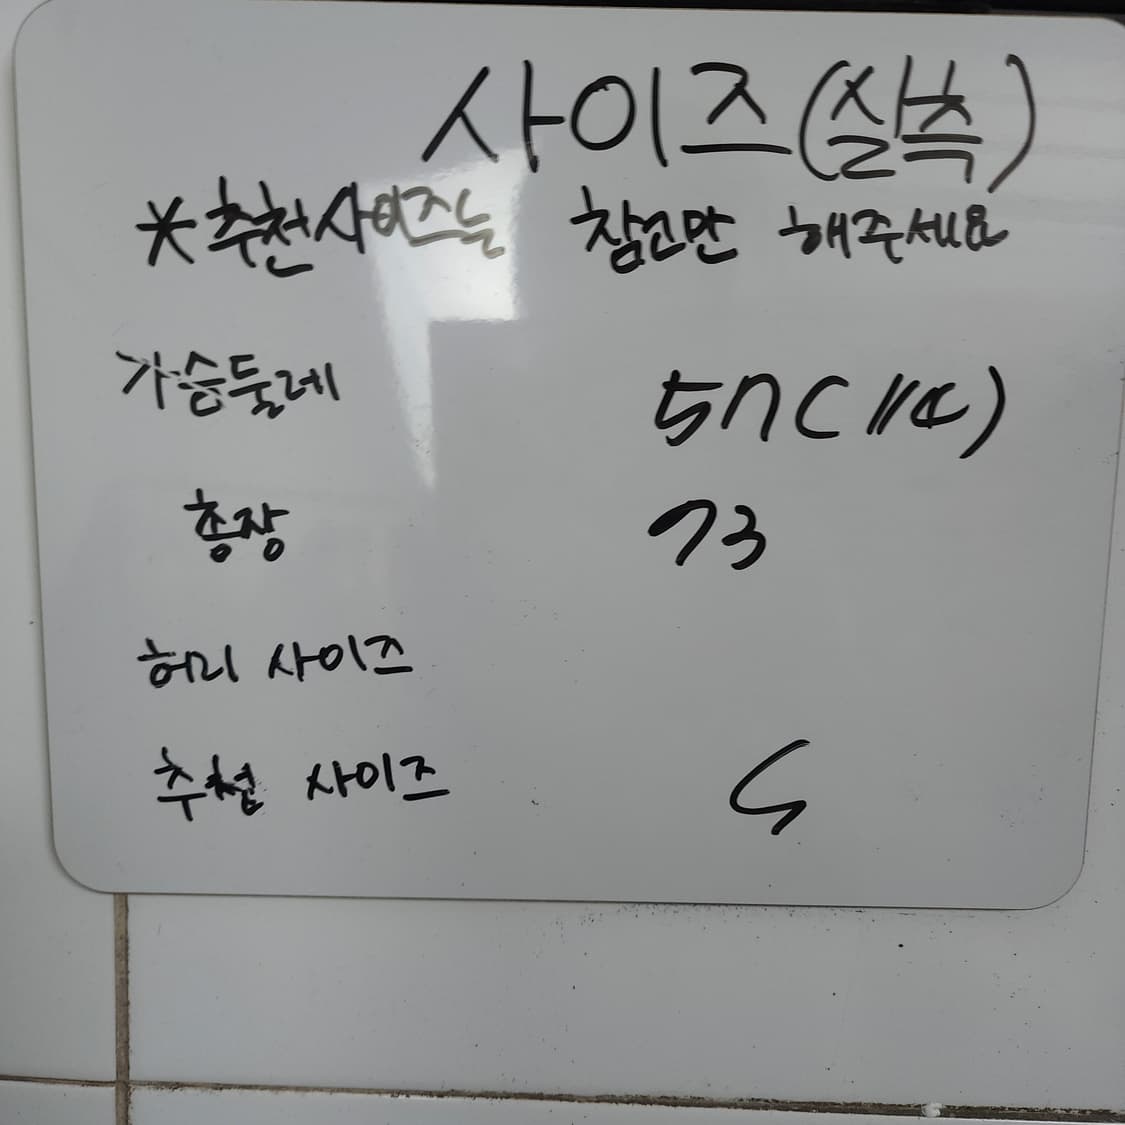 사이즈(실측)
*추천사이즈는 참고만 해주세요
가슴둘레 57(114)
총장 73
허리 사이즈
추천 사이즈 S